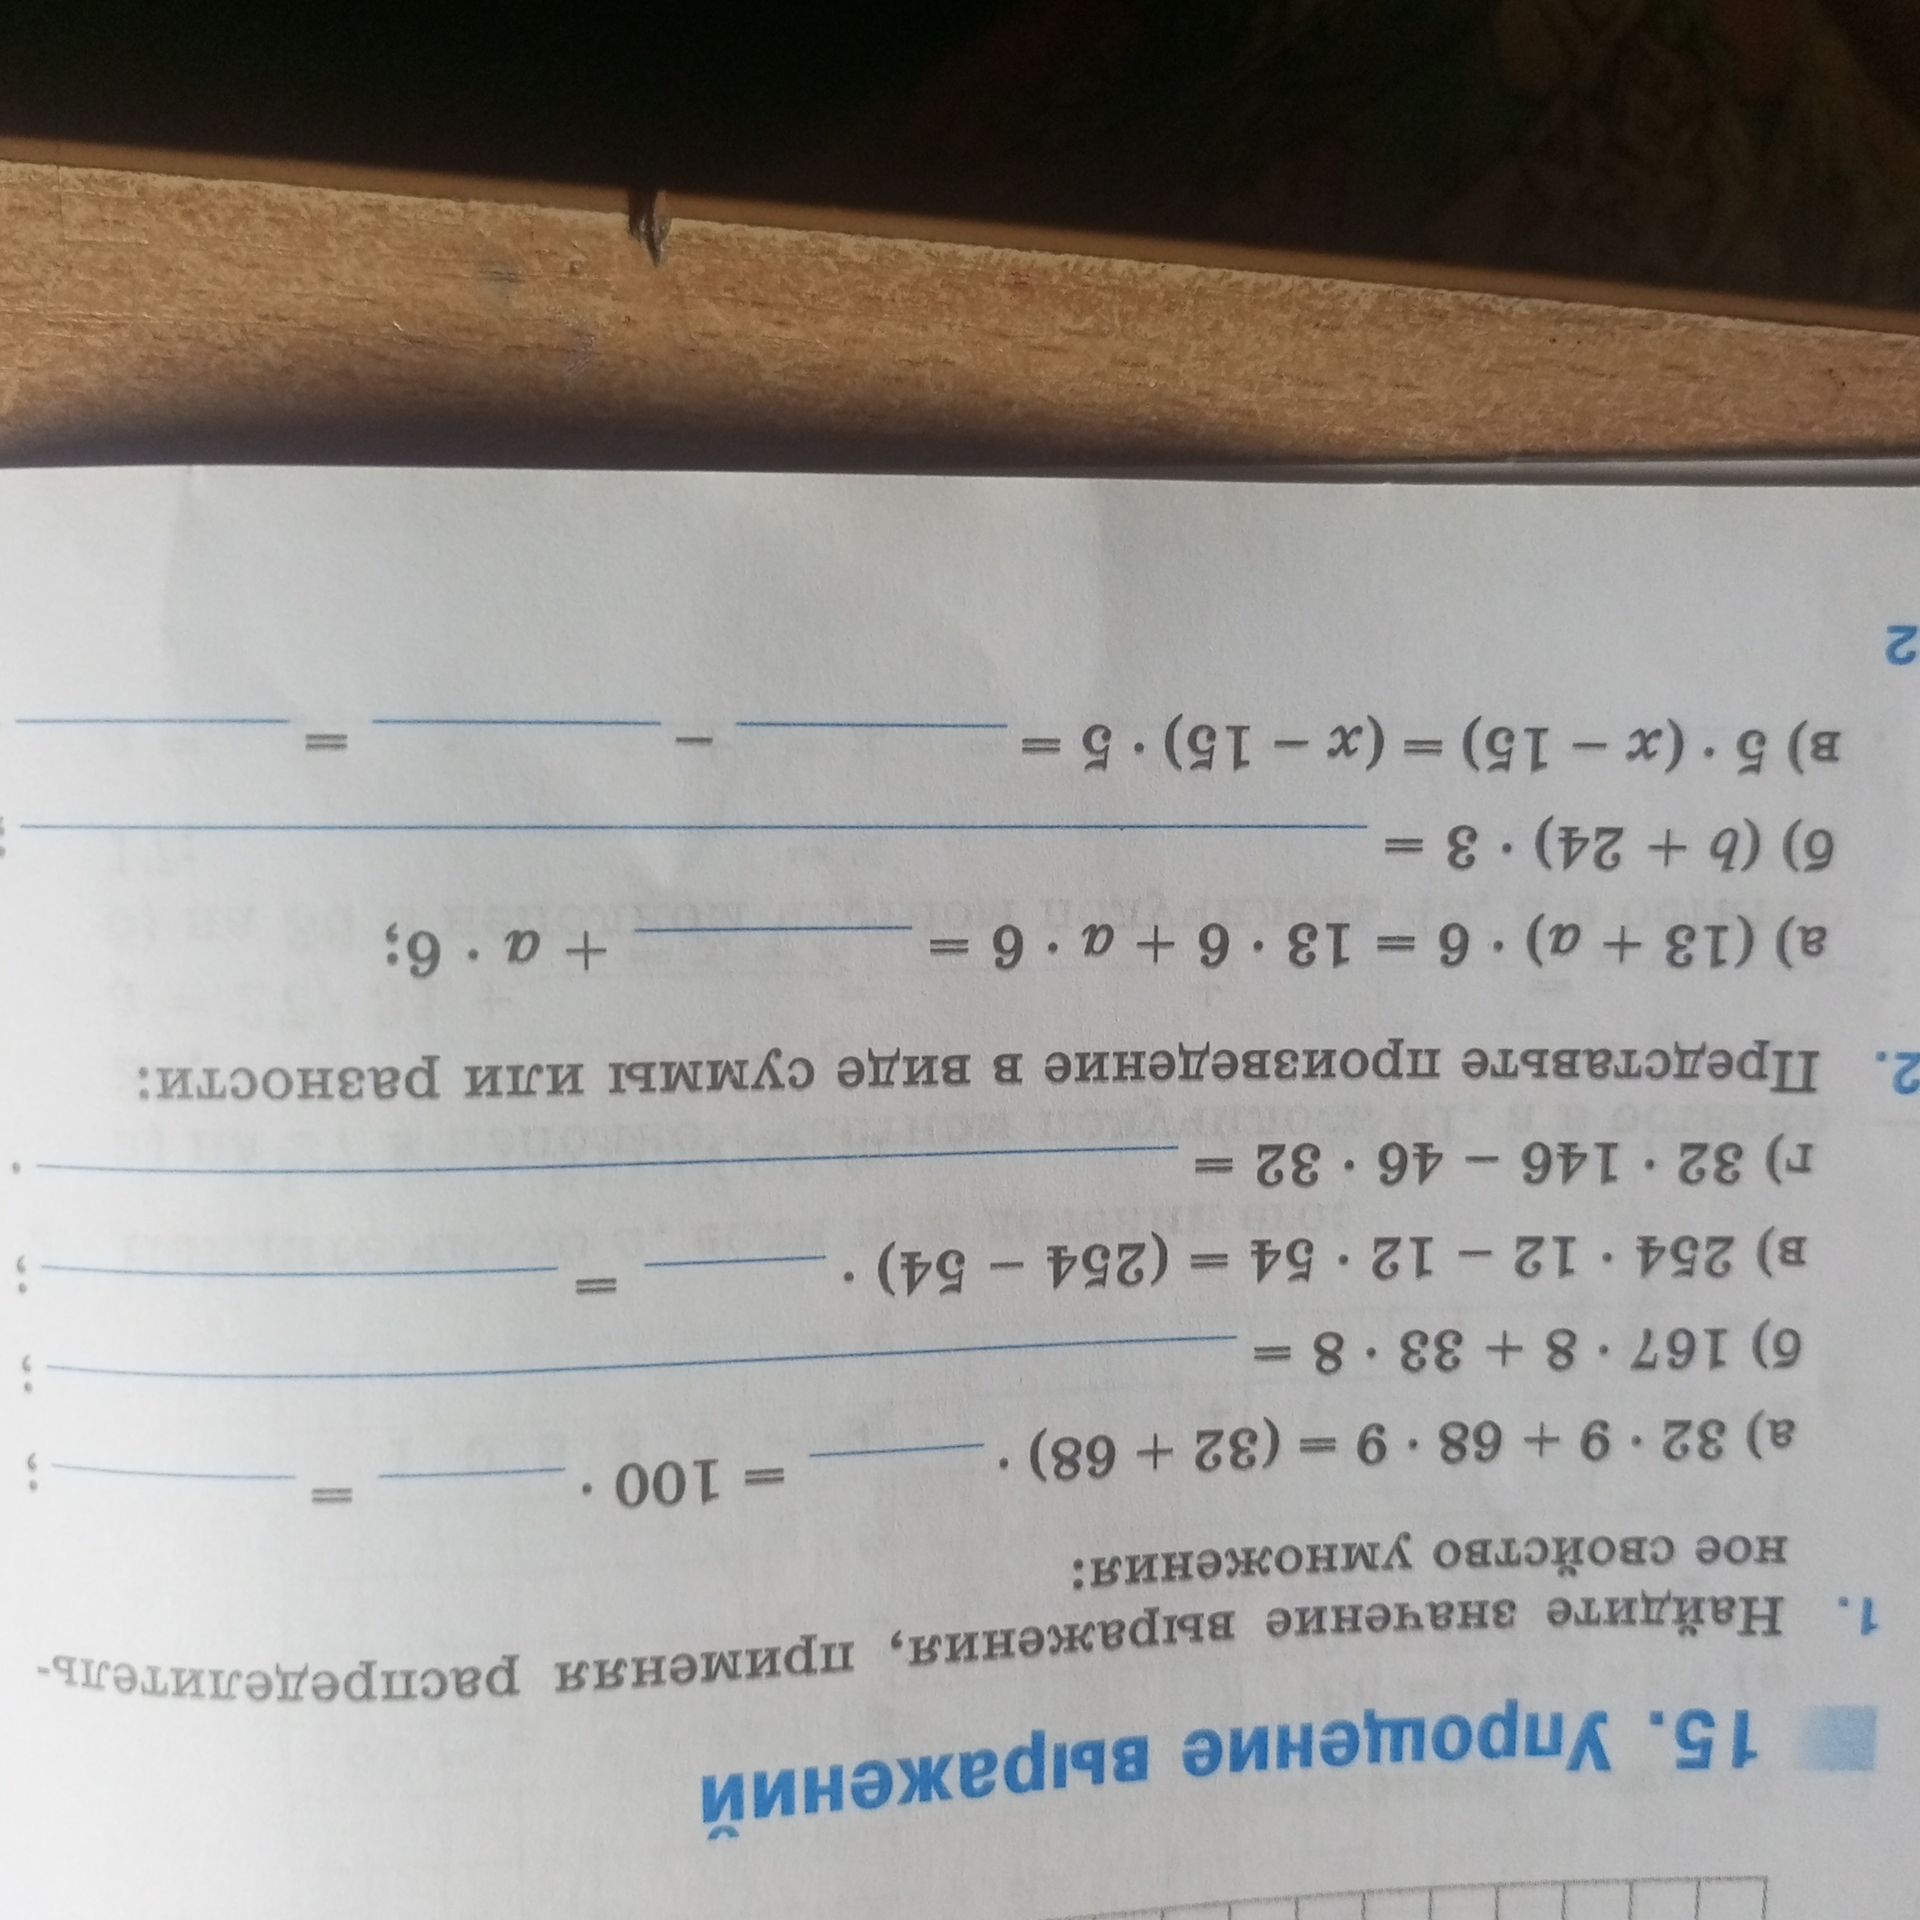 15. Упрощение выражений
1. Найдите значение выражения, применяя распределитель-
ное свойство умножения:
а) 32 · 9 + 68 · 9 = (32 + 68) · ____ = 100 · ____ = ____;
б) 167 · 8 + 33 · 8 = ____;
в) 254 · 12 – 12 · 54 = (254 – 54) · ____ = ____;
г) 32 · 146 – 46 · 32 = ____.
2. Представьте произведение в виде суммы или разности:
а) (13 + a) · 6 = 13 · 6 + a · 6 = ____ + a · 6;
б) (b + 24) · 3 = ____;
в) 5 · (x – 15) = (x – 15) · 5 = ____ – ____ = ____
2